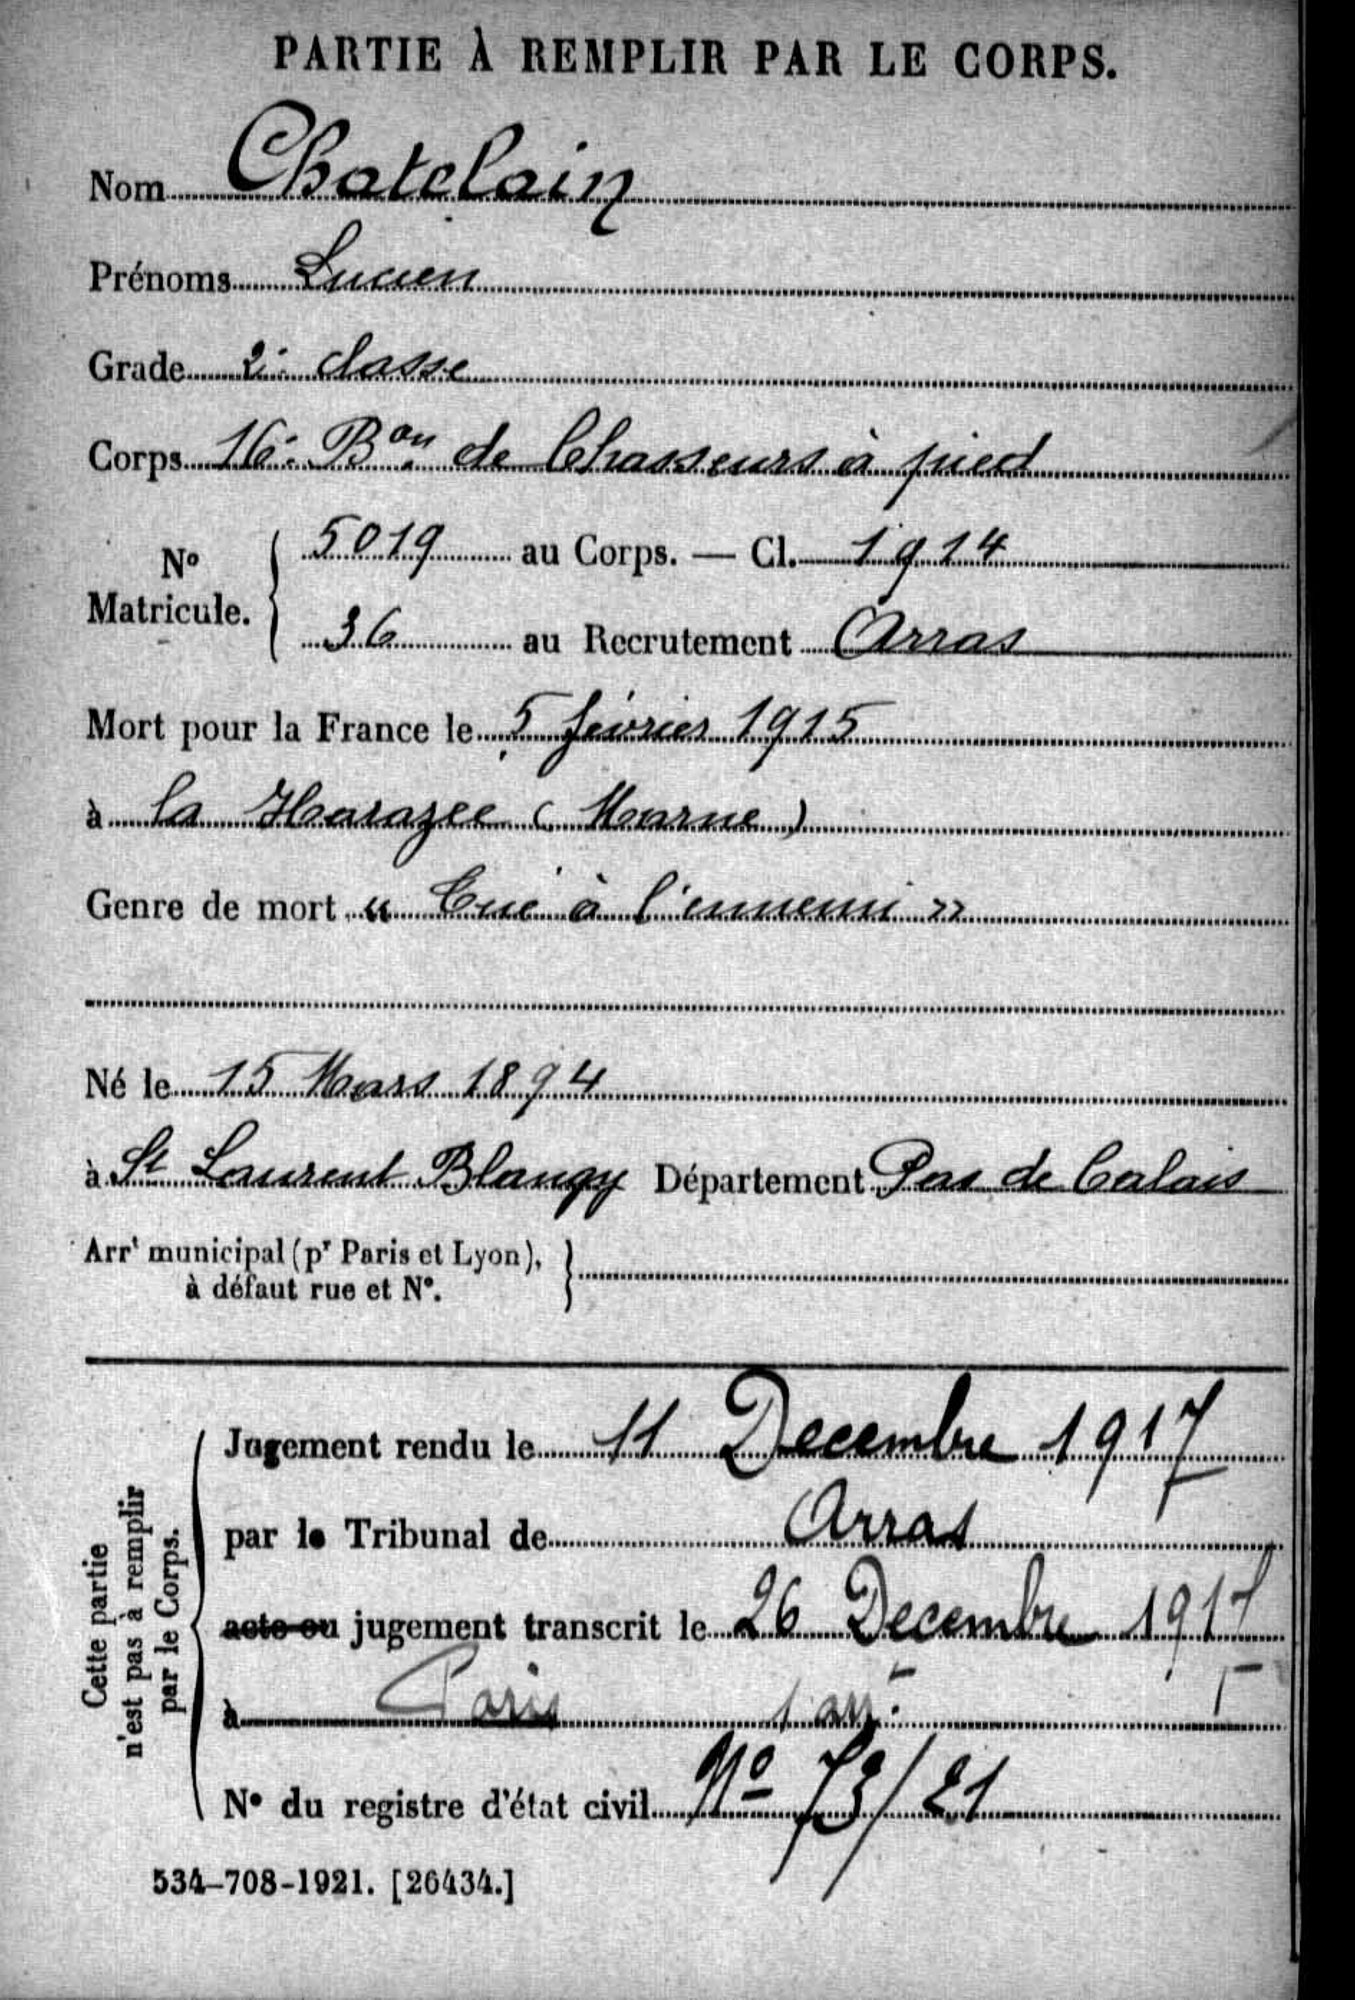 PARTIE À REMPLIR PAR LE CORPS.
Nom Chatelain
Prénoms Lucien
Grade 2e classe
Corps 16e Bon de Chasseurs à pied
No Matricule. { 5019 au Corps. — Cl. 1914
36 au Recrutement Arras
Mort pour la France le 5 février 1915
à la Harazee (Marne)
Genre de mort « Tué à l'ennemi »
Né le 15 Mars 1894
à St Laurent Blangy Département Pas de Calais
Arrt municipal (pr Paris et Lyon), }
à défaut rue et No.
Cette partie
n'est pas à remplir
par le Corps.
Jugement rendu le 11 Decembre 1917
par le Tribunal de Arras
acte ou jugement transcrit le 26 Decembre 1917
à Paris 1 arrt
No du registre d'état civil No 73/21
534-708-1921. [26434.]